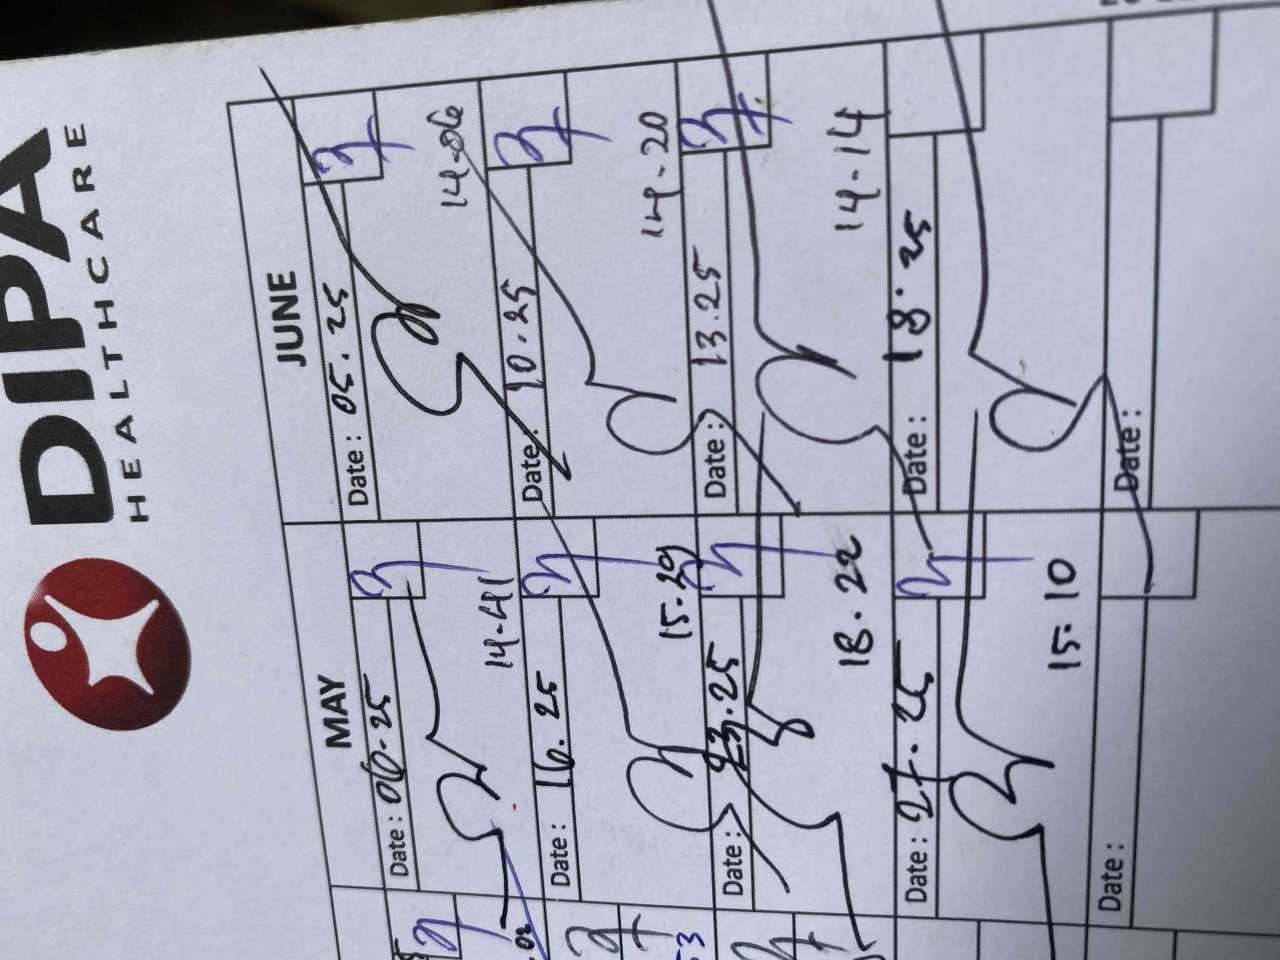 DIPA
HEALTHCARE
MAY
Date: 06.25
14-41
Date: 16.25
15.29
Date: 23.25
18.22
Date: 27.25
15.10
Date:
JUNE
Date: 05.25
14-06
Date: 10.25
14-20
Date: 13.25
14-14
Date: 18.25
Date:
53